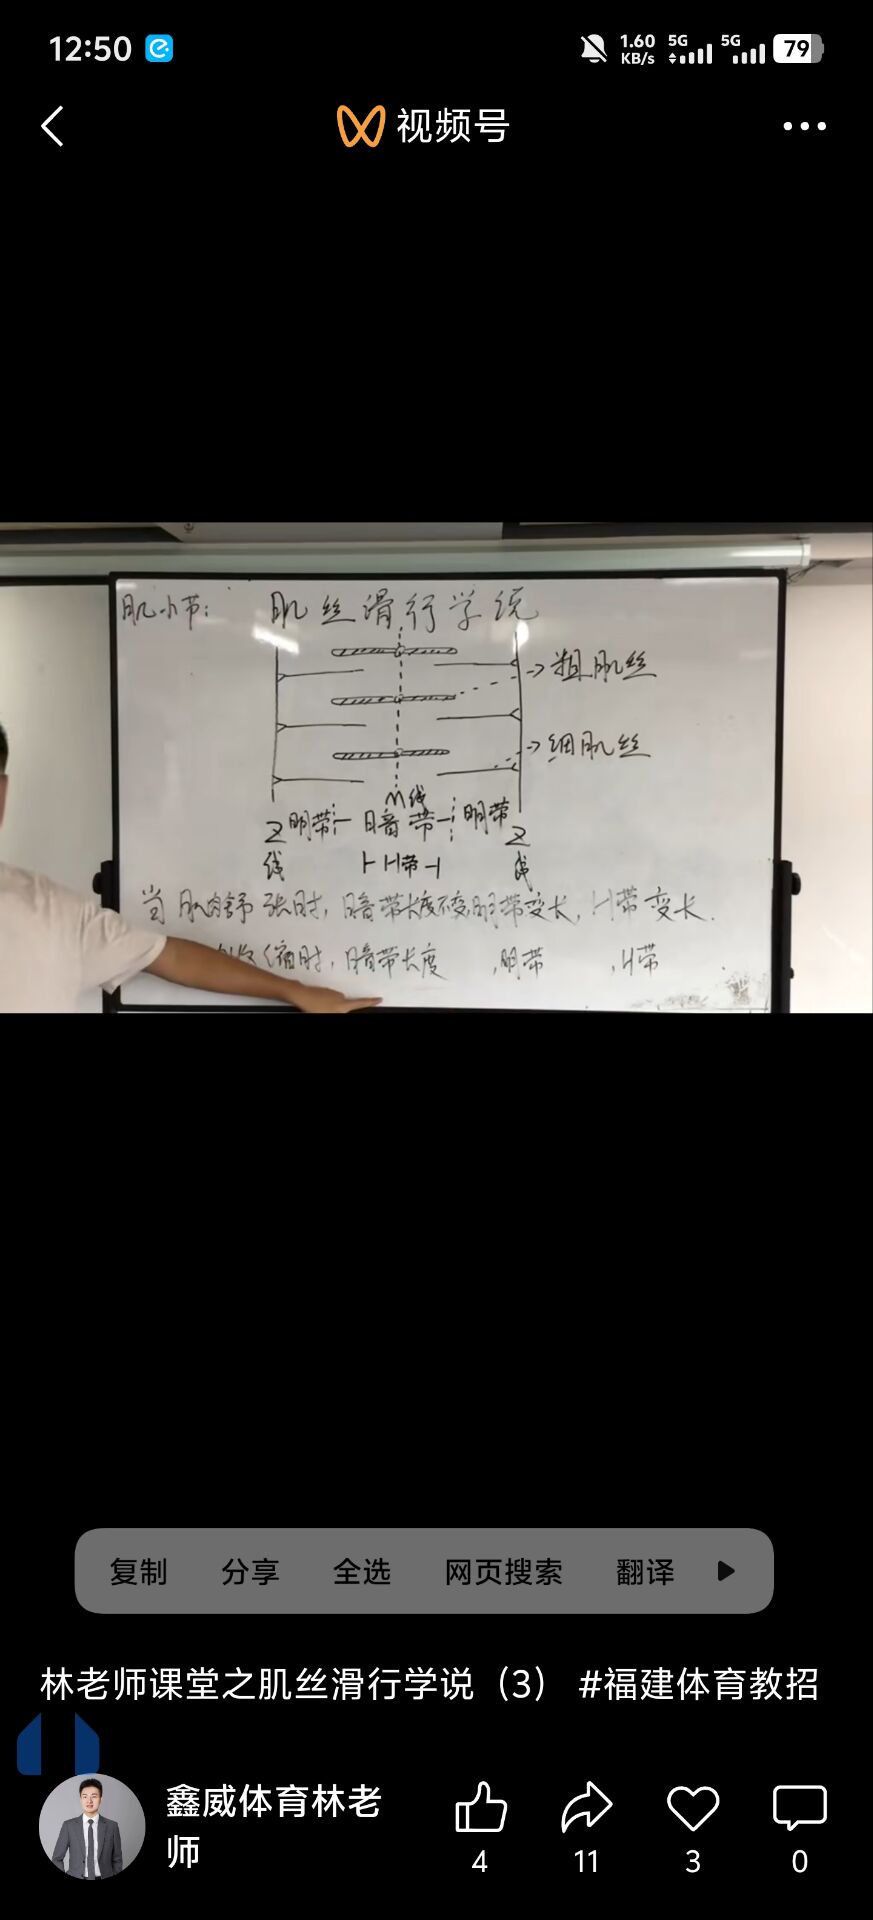 12:50
1.60 KB/s 5G 5G 79
视频号
肌小节： 肌丝滑行学说
粗肌丝
细肌丝
M线
明带 暗带 明带
Z线 H带 Z线
当肌肉舒张时，暗带长度不变，明带变长，H带变长．
缩时，暗带长度 ，明带 ，H带
复制 分享 全选 网页搜索 翻译
林老师课堂之肌丝滑行学说（3） #福建体育教招
鑫威体育林老师
4 11 3 0